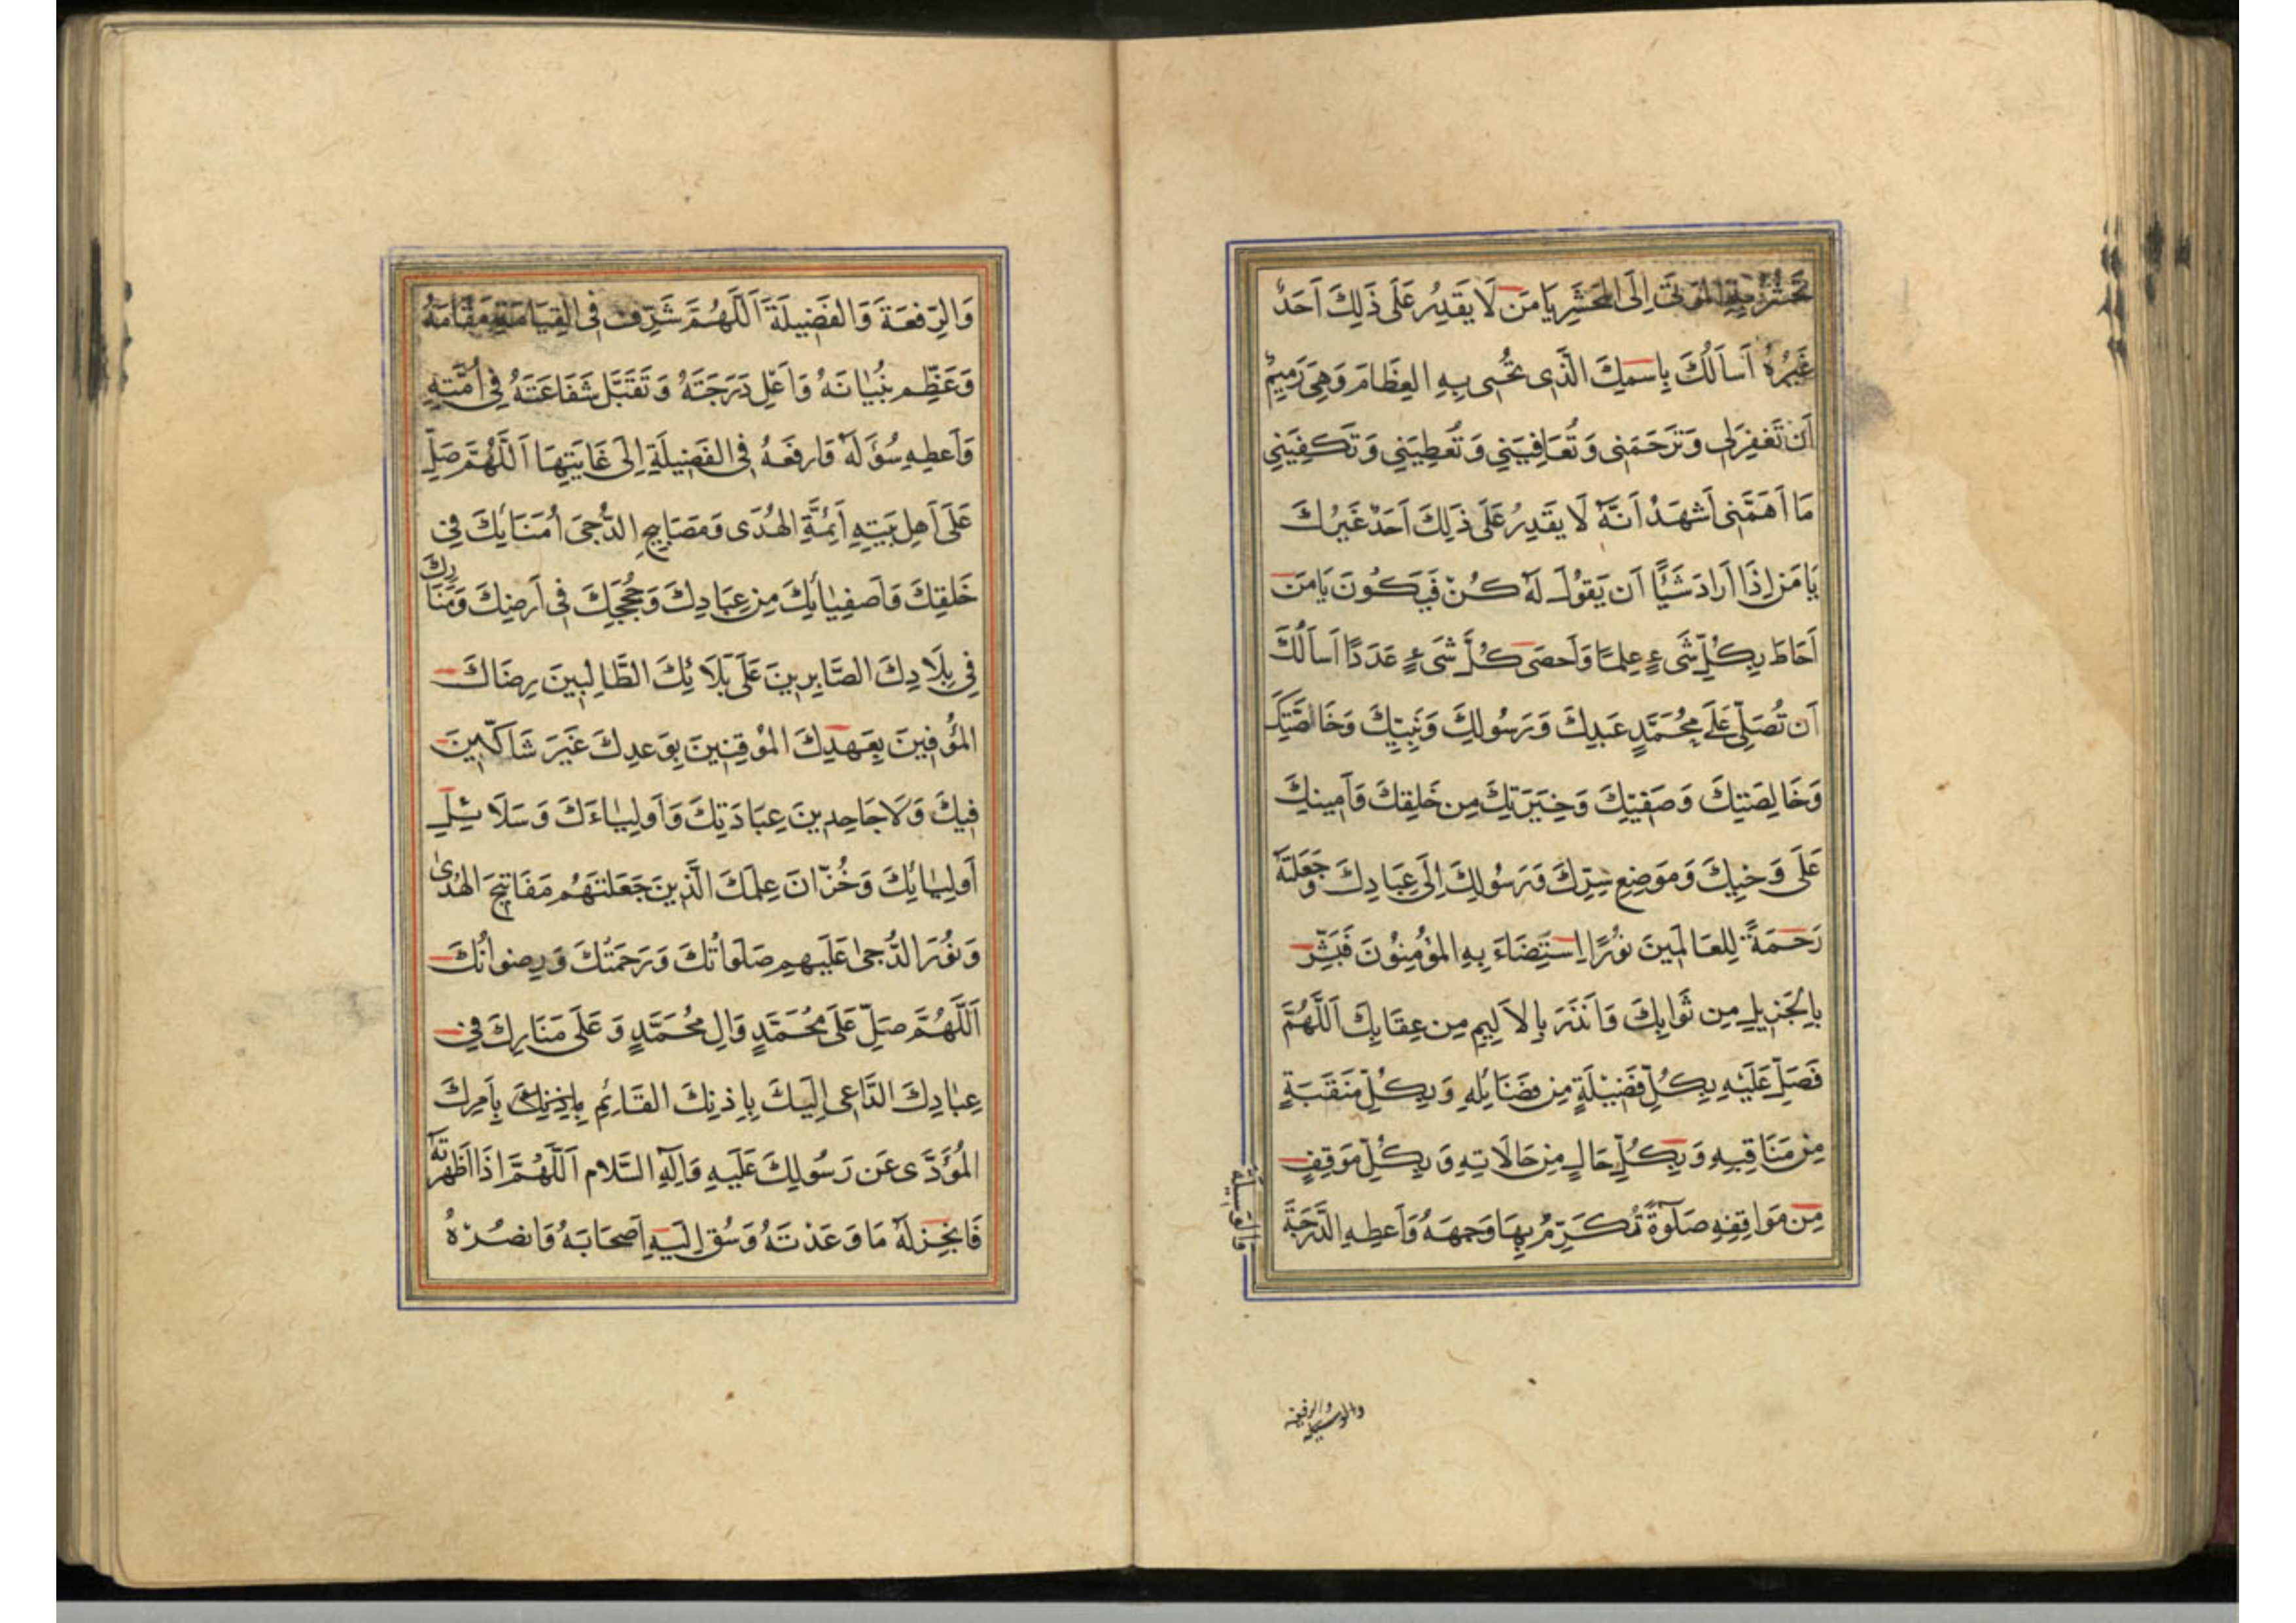 تَحشُرُ بِهِ المَوتىٰ اِلَى المَحشَرِ يَا مَن لَا يَقدِرُ عَلَى ذَلِكَ اَحَدٌ
غَيرُهُ اَسأَلُكَ بِاسمِكَ الَّذِى تُحيِى بِهِ العِظَامَ وَهِىَ رَمِيمٌ
اَن تَغفِرَلِى وَتَرحَمَنِى وَتُعَافِيَنِى وَتُعطِيَنِى وَتَكفِيَنِى
مَا اَهَمَّنِى اَشهَدُ اَنَّهُ لَا يَقدِرُ عَلَى ذَلِكَ اَحَدٌ غَيرُكَ
يَا مَن اِذَا اَرَادَ شَيئًا اَن يَقُولَ لَهُ كُن فَيَكُونَ يَا مَن
اَحَاطَ بِكُلِّ شَىءٍ عِلمًا وَاَحصَى كُلَّ شَىءٍ عَدَدًا اَسأَلُكَ
اَن تُصَلِّىَ عَلَى مُحَمَّدٍ عَبدِكَ وَرَسُولِكَ وَنَبِيِّكَ وَخَاصَّتِكَ
وَخَالِصَتِكَ وَصَفِيِّكَ وَخِيَرَتِكَ مِن خَلقِكَ وَاَمِينِكَ
عَلَى وَحيِكَ وَمَوضِعِ سِرِّكَ وَرَسُولِكَ اِلَى عِبَادِكَ وَجَعَلتَهُ
رَحمَةً لِلعَالَمِينَ نُورًا اِستَضَاءَ بِهِ المُؤمِنُونَ فَبَشِّر
بِالجَزِيلِ مِن ثَوَابِكَ وَاَنذَرَ بِالاَلِيمِ مِن عِقَابِكَ اَللّٰهُمَّ
فَصَلِّ عَلَيهِ بِكُلِّ فَضِيلَةٍ مِن فَضَائِلِهِ وَبِكُلِّ مَنقَبَةٍ
مِن مَنَاقِبِهِ وَبِكُلِّ حَالٍ مِن حَالَاتِهِ وَبِكُلِّ مَوقِفٍ
مِن مَوَاقِفِهِ صَلٰوةً تُكَرِّمُ بِهَا وَجهَهُ وَاَعطِهِ الدَّرَجَةَ
وَالوَسِيلَةَ
والوسيله والرفعة
وَالرِّفعَةَ وَالفَضِيلَةَ اَللّٰهُمَّ شَرِّف فِى القِيَامَةِ مَقَامَهُ
وَعَظِّم بُنيَانَهُ وَاَعلِ دَرَجَتَهُ وَتَقَبَّل شَفَاعَتَهُ فِى اُمَّتِهِ
وَاَعطِهِ سُؤلَهُ وَارفَعهُ فِى الفَضِيلَةِ اِلَى غَايَتِهَا اَللّٰهُمَّ صَلِّ
عَلَى اَهلِ بَيتِهِ اَئِمَّةِ الهُدَى وَمَصَابِيحِ الدُّجَى اُمَنَائِكَ فِى
خَلقِكَ وَاَصفِيَائِكَ مِن عِبَادِكَ وَحُجَجِكَ فِى اَرضِكَ وَمَنَارِكَ
فِى بِلَادِكَ الصَّابِرِينَ عَلَى بَلَائِكَ الطَّالِبِينَ رِضَاكَ
المُؤفِينَ بِعَهدِكَ المُوقِنِينَ بِوَعدِكَ غَيرَ شَاكِّينَ
فِيكَ وَلَا جَاحِدِينَ عِبَادَتِكَ وَاَولِيَاءَكَ وَسَلَائِلِ
اَولِيَائِكَ وَخُزَّانَ عِلمِكَ الَّذِينَ جَعَلتَهُم مَفَاتِيحَ الهُدىٰ
وَنُورَ الدُّجىٰ عَلَيهِم صَلَوَاتُكَ وَرَحمَتُكَ وَرِضوَانُكَ
اَللّٰهُمَّ صَلِّ عَلَى مُحَمَّدٍ وَالِ مُحَمَّدٍ وَعَلَى مَنَارِكَ فِى
عِبَادِكَ الدَّاعِى اِلَيكَ بِاِذنِكَ القَائِمِ بِاَمرِكَ
المُؤَدِّى عَن رَسُولِكَ عَلَيهِ وَاٰلِهِ السَّلَام اَللّٰهُمَّ اِذَا اَظهَرتَهُ
فَاَنجِز لَهُ مَا وَعَدتَهُ وَسُق اِلَيهِ اَصحَابَهُ وَانصُرهُ